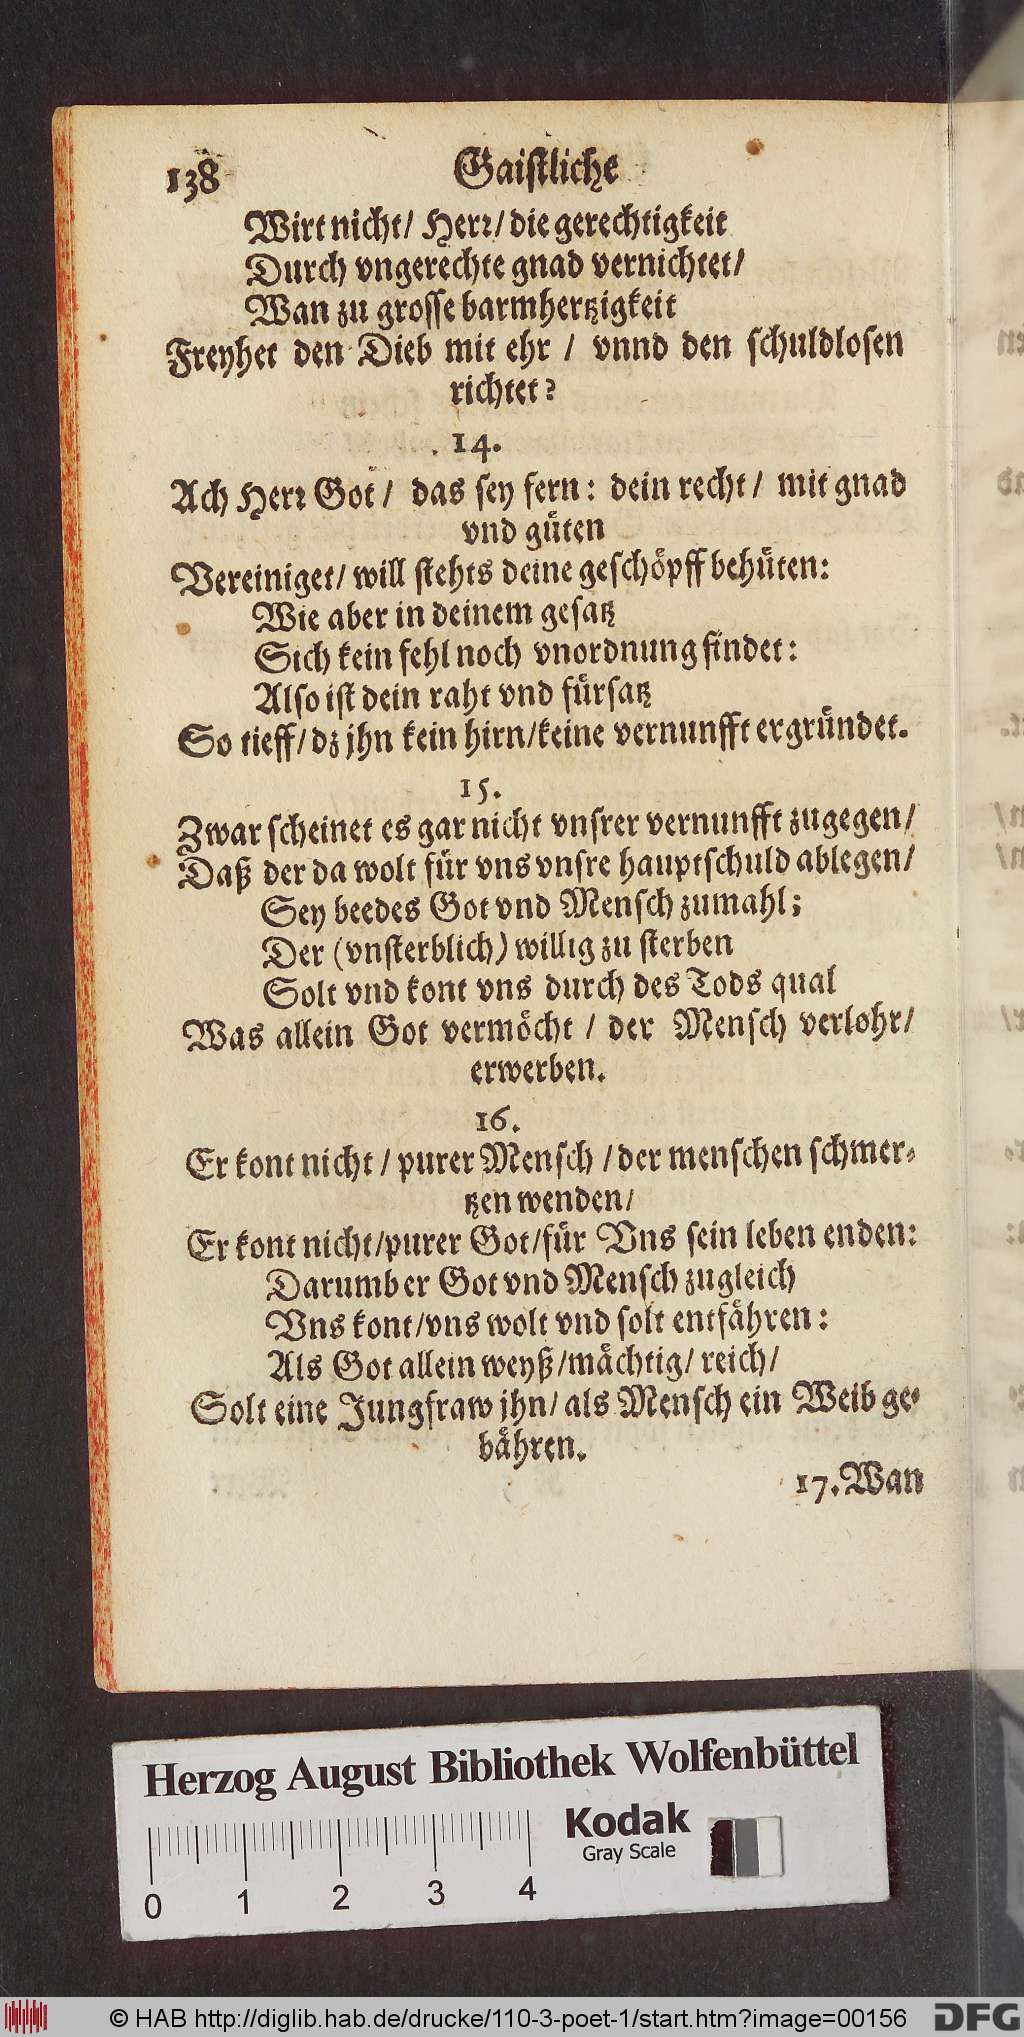 138 Gaistliche
Wirt nicht/ Herr/ die gerechtigkeit
Durch vngerechte gnad vernichtet/
Wan zu grosse barmhertzigkeit
Freyhet den Dieb mit ehr / vnnd den schuldlosen
richtet?
14.
Ach Herr Got / das sey fern: dein recht / mit gnad
vnd güten
Vereiniget/ will stehts deine geschöpff behüten:
Wie aber in deinem gesatz
Sich kein fehl noch vnordnung findet:
Also ist dein raht vnd fürsatz
So tieff/ dz jhn kein hirn/ keine vernunfft ergründet.
15.
Zwar scheinet es gar nicht vnsrer vernunfft zugegen/
Daß der da wolt für vns vnsre hauptschuld ablegen/
Sey beedes Got vnd Mensch zumahl;
Der (vnsterblich) willig zu sterben
Solt vnd kont vns durch des Tods qual
Was allein Got vermöcht / der Mensch verlohr/
erwerben.
16.
Er kont nicht / purer Mensch / der menschen schmer-
tzen wenden/
Er kont nicht/ purer Got/ für Vns sein leben enden:
Darumb er Got vnd Mensch zugleich
Vns kont/ vns wolt vnd solt entfähren:
Als Got allein weyß/ mächtig/ reich/
Solt eine Jungfraw jhn/ als Mensch ein Weib ge-
bähren.
17. Wan
Herzog August Bibliothek Wolfenbüttel
Kodak
Gray Scale
0 1 2 3 4
© HAB http://diglib.hab.de/drucke/110-3-poet-1/start.htm?image=00156
DFG